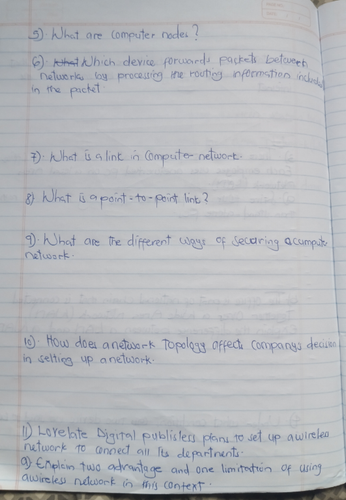 5) What are computer nodes?
6) Which device forwards packets between
networks by processing the routing information included
in the packet.
7) What is a link in Computer network.
8) What is a point-to-point link?
9) What are the different ways of securing a compute
network.
10) How does a network Topology affects companys decision
in setting up a network.
11) Lovelate Digital publishers plans to set up a wireless
network to connect all its departments.
a) Explain two advantage and one limitation of using
a wireless network in this context.